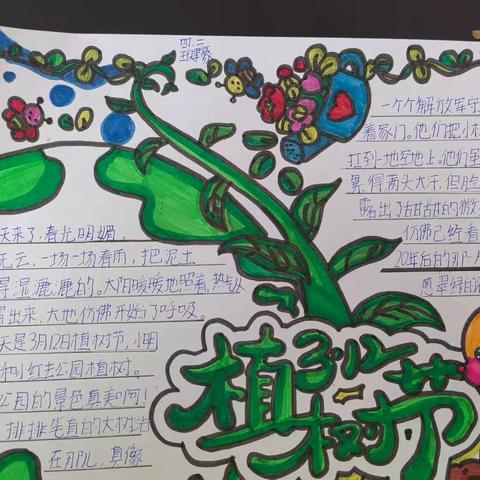 四、二
王建
一个个解放军守
着家门。他们把小
扛到一地空地上。他们虽
累得满头大汗,但脸
露出了甜甜的微
仿佛已经看
20年后的那一片
葱翠绿的
天来了,春光明媚,
无云,一场一场春雨,把泥土
得湿漉漉的。太阳暖暖地照着,热
冒出来,大地仿佛开始了呼吸。
天是3月12日植树节,小明
和小红去公园植树。
公园的景色真美啊!
排排笔直的大树
在那儿,真像
3.12
植树节